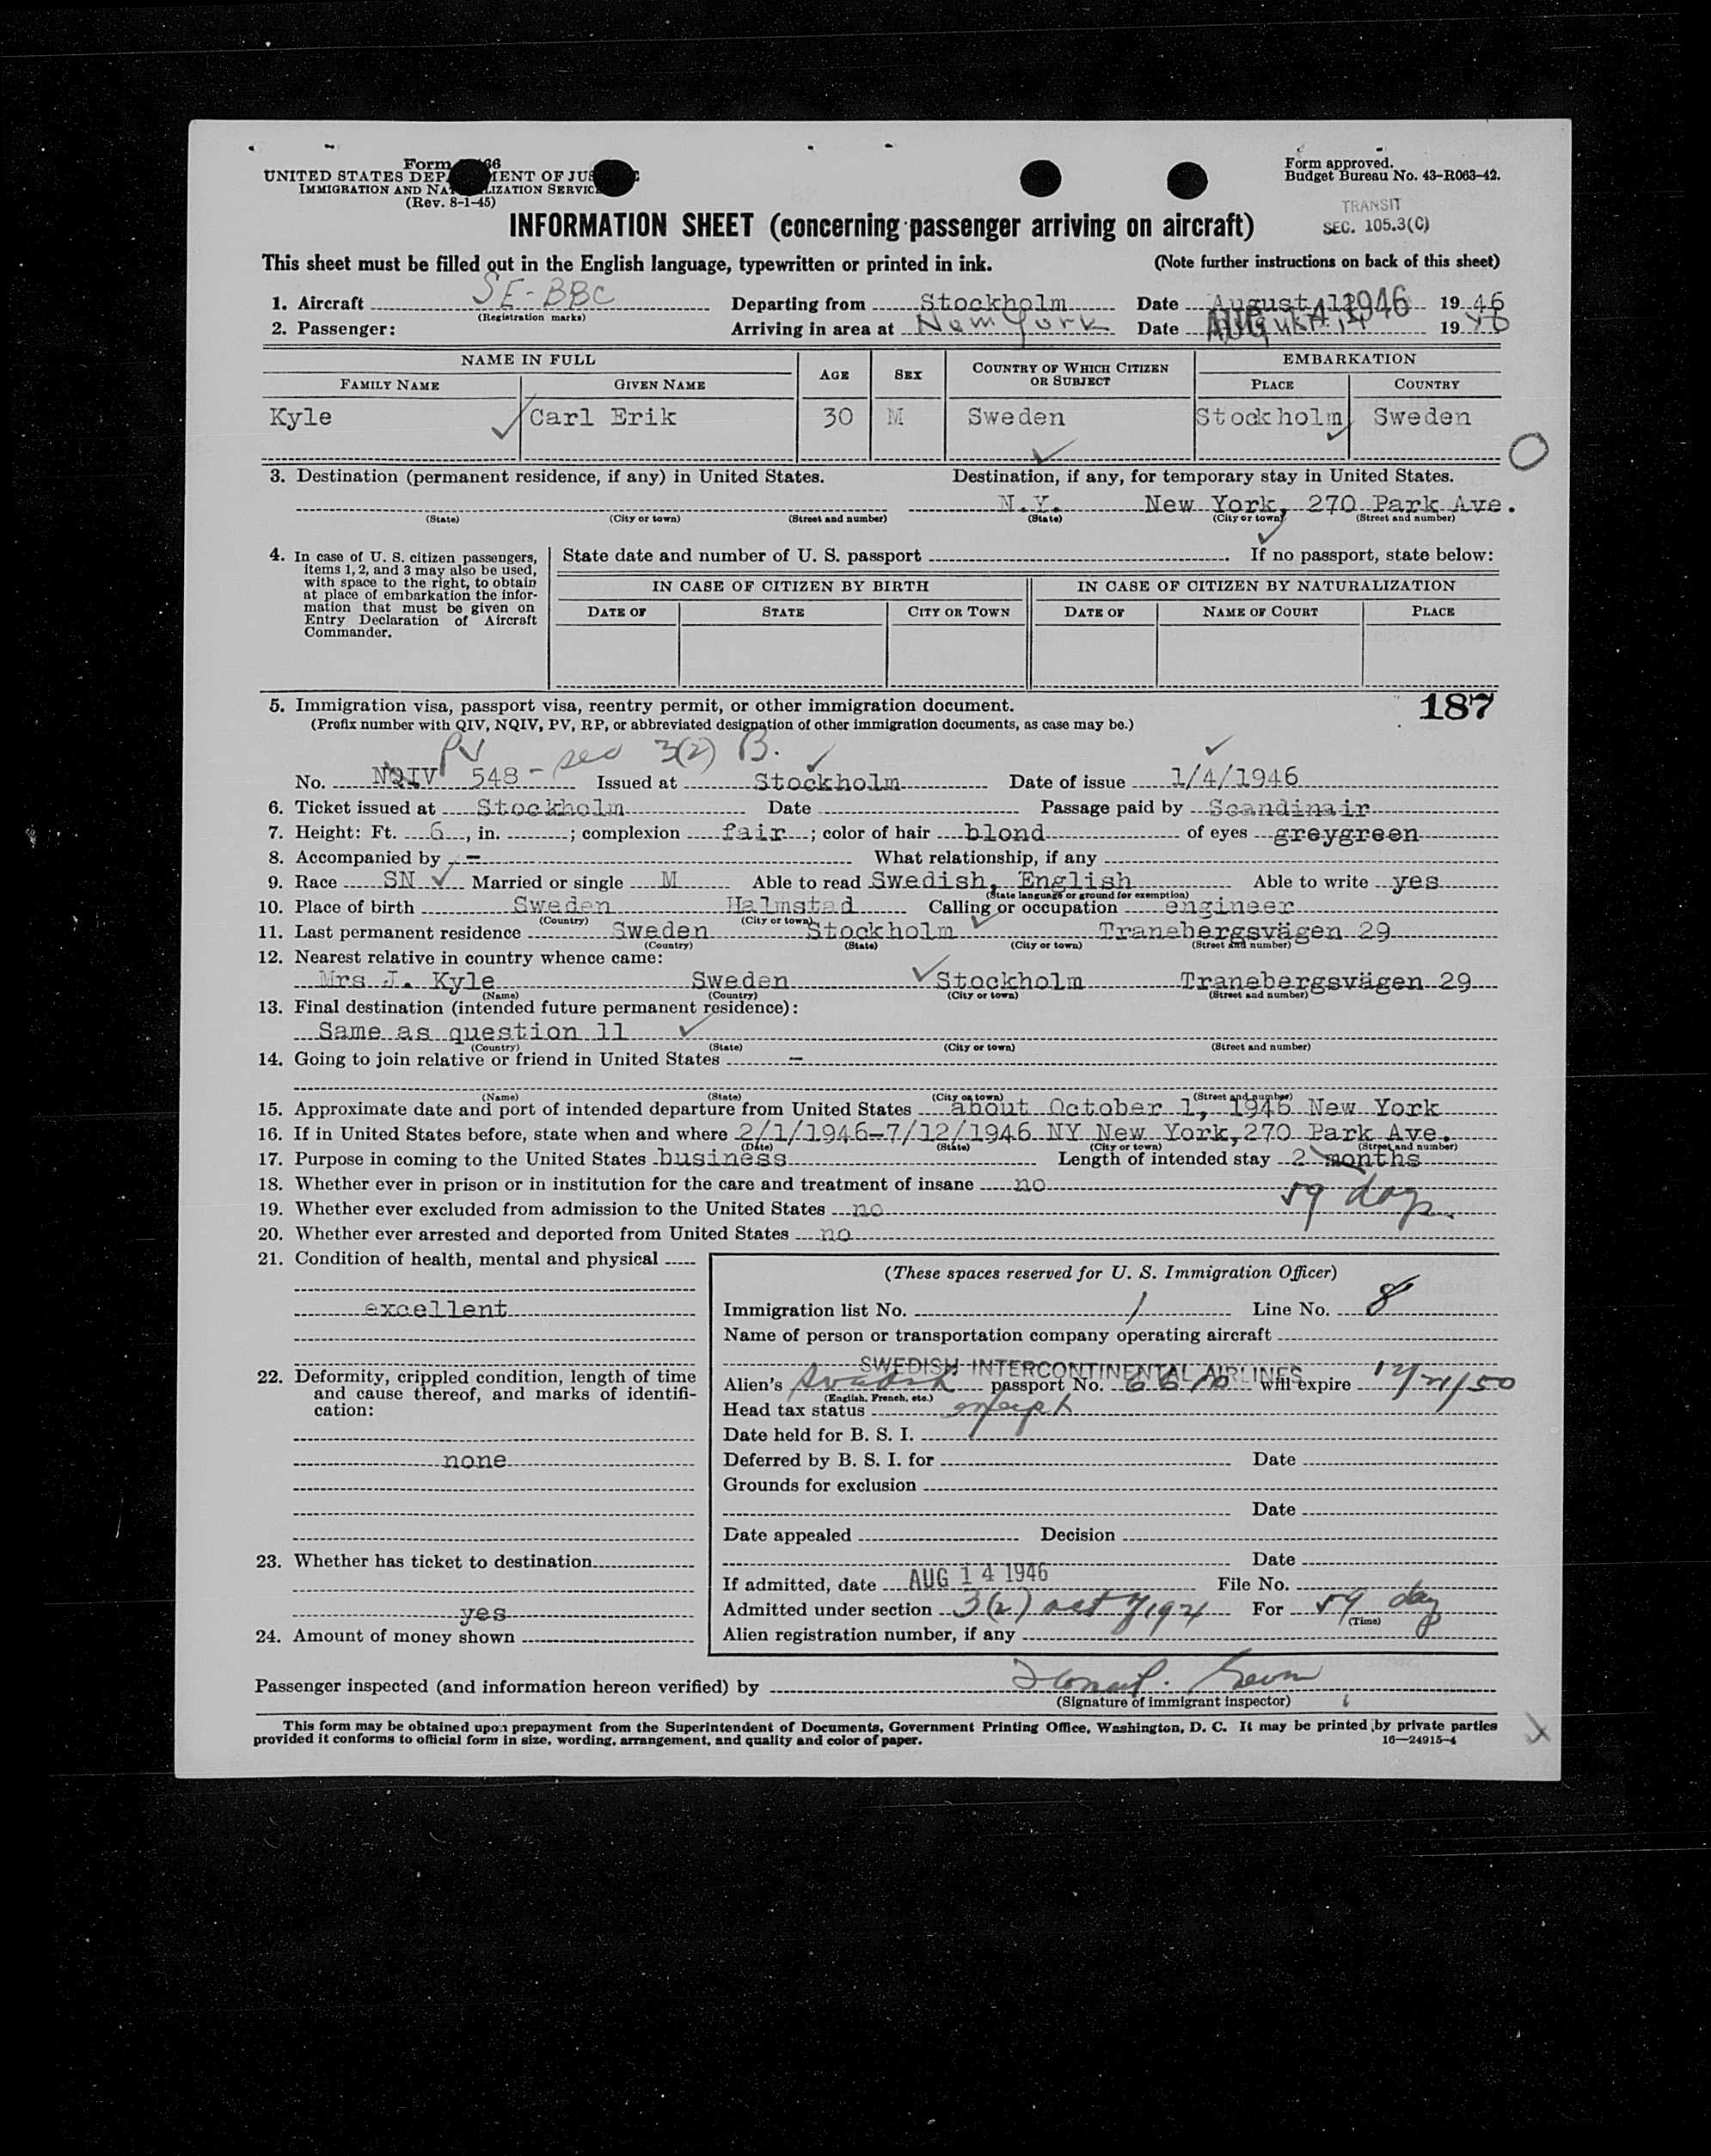 Form 66
Form approved.
UNITED STATES DEP MENT OF JUS E
Budget Bureau No. 43-R063-42.
IMMIGRATION AND NA LIZATION SERVIC
(Rev. 8-1-45)
TRANSIT
SEC. 105.3(C)
INFORMATION SHEET (concerning passenger arriving on aircraft)
This sheet must be filled out in the English language, typewritten or printed in ink. (Note further instructions on back of this sheet)
1. Aircraft SE-BBC Departing from Stockholm Date August 1946 19 46
(Registration marks)
2. Passenger: Arriving in area at New York Date AUG 19 46
NAME IN FULL AGE SEX COUNTRY OF WHICH CITIZEN OR SUBJECT EMBARKATION
FAMILY NAME GIVEN NAME PLACE COUNTRY
Kyle Carl Erik 30 M Sweden Stockholm Sweden
3. Destination (permanent residence, if any) in United States. Destination, if any, for temporary stay in United States.
N.Y. New York, 270 Park Ave.
(State) (City or town) (Street and number) (State) (City or town) (Street and number)
4. In case of U. S. citizen passengers, items 1, 2, and 3 may also be used, with space to the right, to obtain at place of embarkation the information that must be given on Entry Declaration of Aircraft Commander.
State date and number of U. S. passport If no passport, state below:
IN CASE OF CITIZEN BY BIRTH IN CASE OF CITIZEN BY NATURALIZATION
DATE OF STATE CITY OR TOWN DATE OF NAME OF COURT PLACE
5. Immigration visa, passport visa, reentry permit, or other immigration document. 187
(Prefix number with QIV, NQIV, PV, RP, or abbreviated designation of other immigration documents, as case may be.)
PV - sec 3(2) B.
No. NQIV 548 Issued at Stockholm Date of issue 1/4/1946
6. Ticket issued at Stockholm Date Passage paid by Scandinair
7. Height: Ft. 6, in. ; complexion fair; color of hair blond of eyes greygreen
8. Accompanied by - What relationship, if any
9. Race SN Married or single M Able to read Swedish, English Able to write yes
(State language or ground for exemption)
10. Place of birth Sweden Halmstad Calling or occupation engineer
(Country) (City or town)
11. Last permanent residence Sweden Stockholm Tranebergsvägen 29
(Country) (State) (City or town) (Street and number)
12. Nearest relative in country whence came:
Mrs J. Kyle Sweden Stockholm Tranebergsvägen 29
(Name) (Country) (City or town) (Street and number)
13. Final destination (intended future permanent residence):
Same as question 11
(Country) (State) (City or town) (Street and number)
14. Going to join relative or friend in United States -
(Name) (State) (City or town) (Street and number)
15. Approximate date and port of intended departure from United States about October 1, 1946 New York
16. If in United States before, state when and where 2/1/1946-7/12/1946 NY New York, 270 Park Ave.
(Date) (State) (City or town) (Street and number)
17. Purpose in coming to the United States business Length of intended stay 2 months
18. Whether ever in prison or in institution for the care and treatment of insane no
59 days
19. Whether ever excluded from admission to the United States no
20. Whether ever arrested and deported from United States no
21. Condition of health, mental and physical
excellent
22. Deformity, crippled condition, length of time and cause thereof, and marks of identification:
none
23. Whether has ticket to destination
yes
24. Amount of money shown
(These spaces reserved for U. S. Immigration Officer)
Immigration list No. 1 Line No. 8
Name of person or transportation company operating aircraft
SWEDISH INTERCONTINENTAL AIRLINES
Alien's Swedish passport No. will expire 12/21/50
(English, French, etc.)
Head tax status exempt
Date held for B. S. I.
Deferred by B. S. I. for Date
Grounds for exclusion
Date
Date appealed Decision
Date
If admitted, date AUG 14 1946 File No.
Admitted under section 3(2) act of 1924 For 59 day
(Time)
Alien registration number, if any
Passenger inspected (and information hereon verified) by
(Signature of immigrant inspector)
This form may be obtained upon prepayment from the Superintendent of Documents, Government Printing Office, Washington, D. C. It may be printed by private parties
provided it conforms to official form in size, wording, arrangement, and quality and color of paper. 16—24915-4